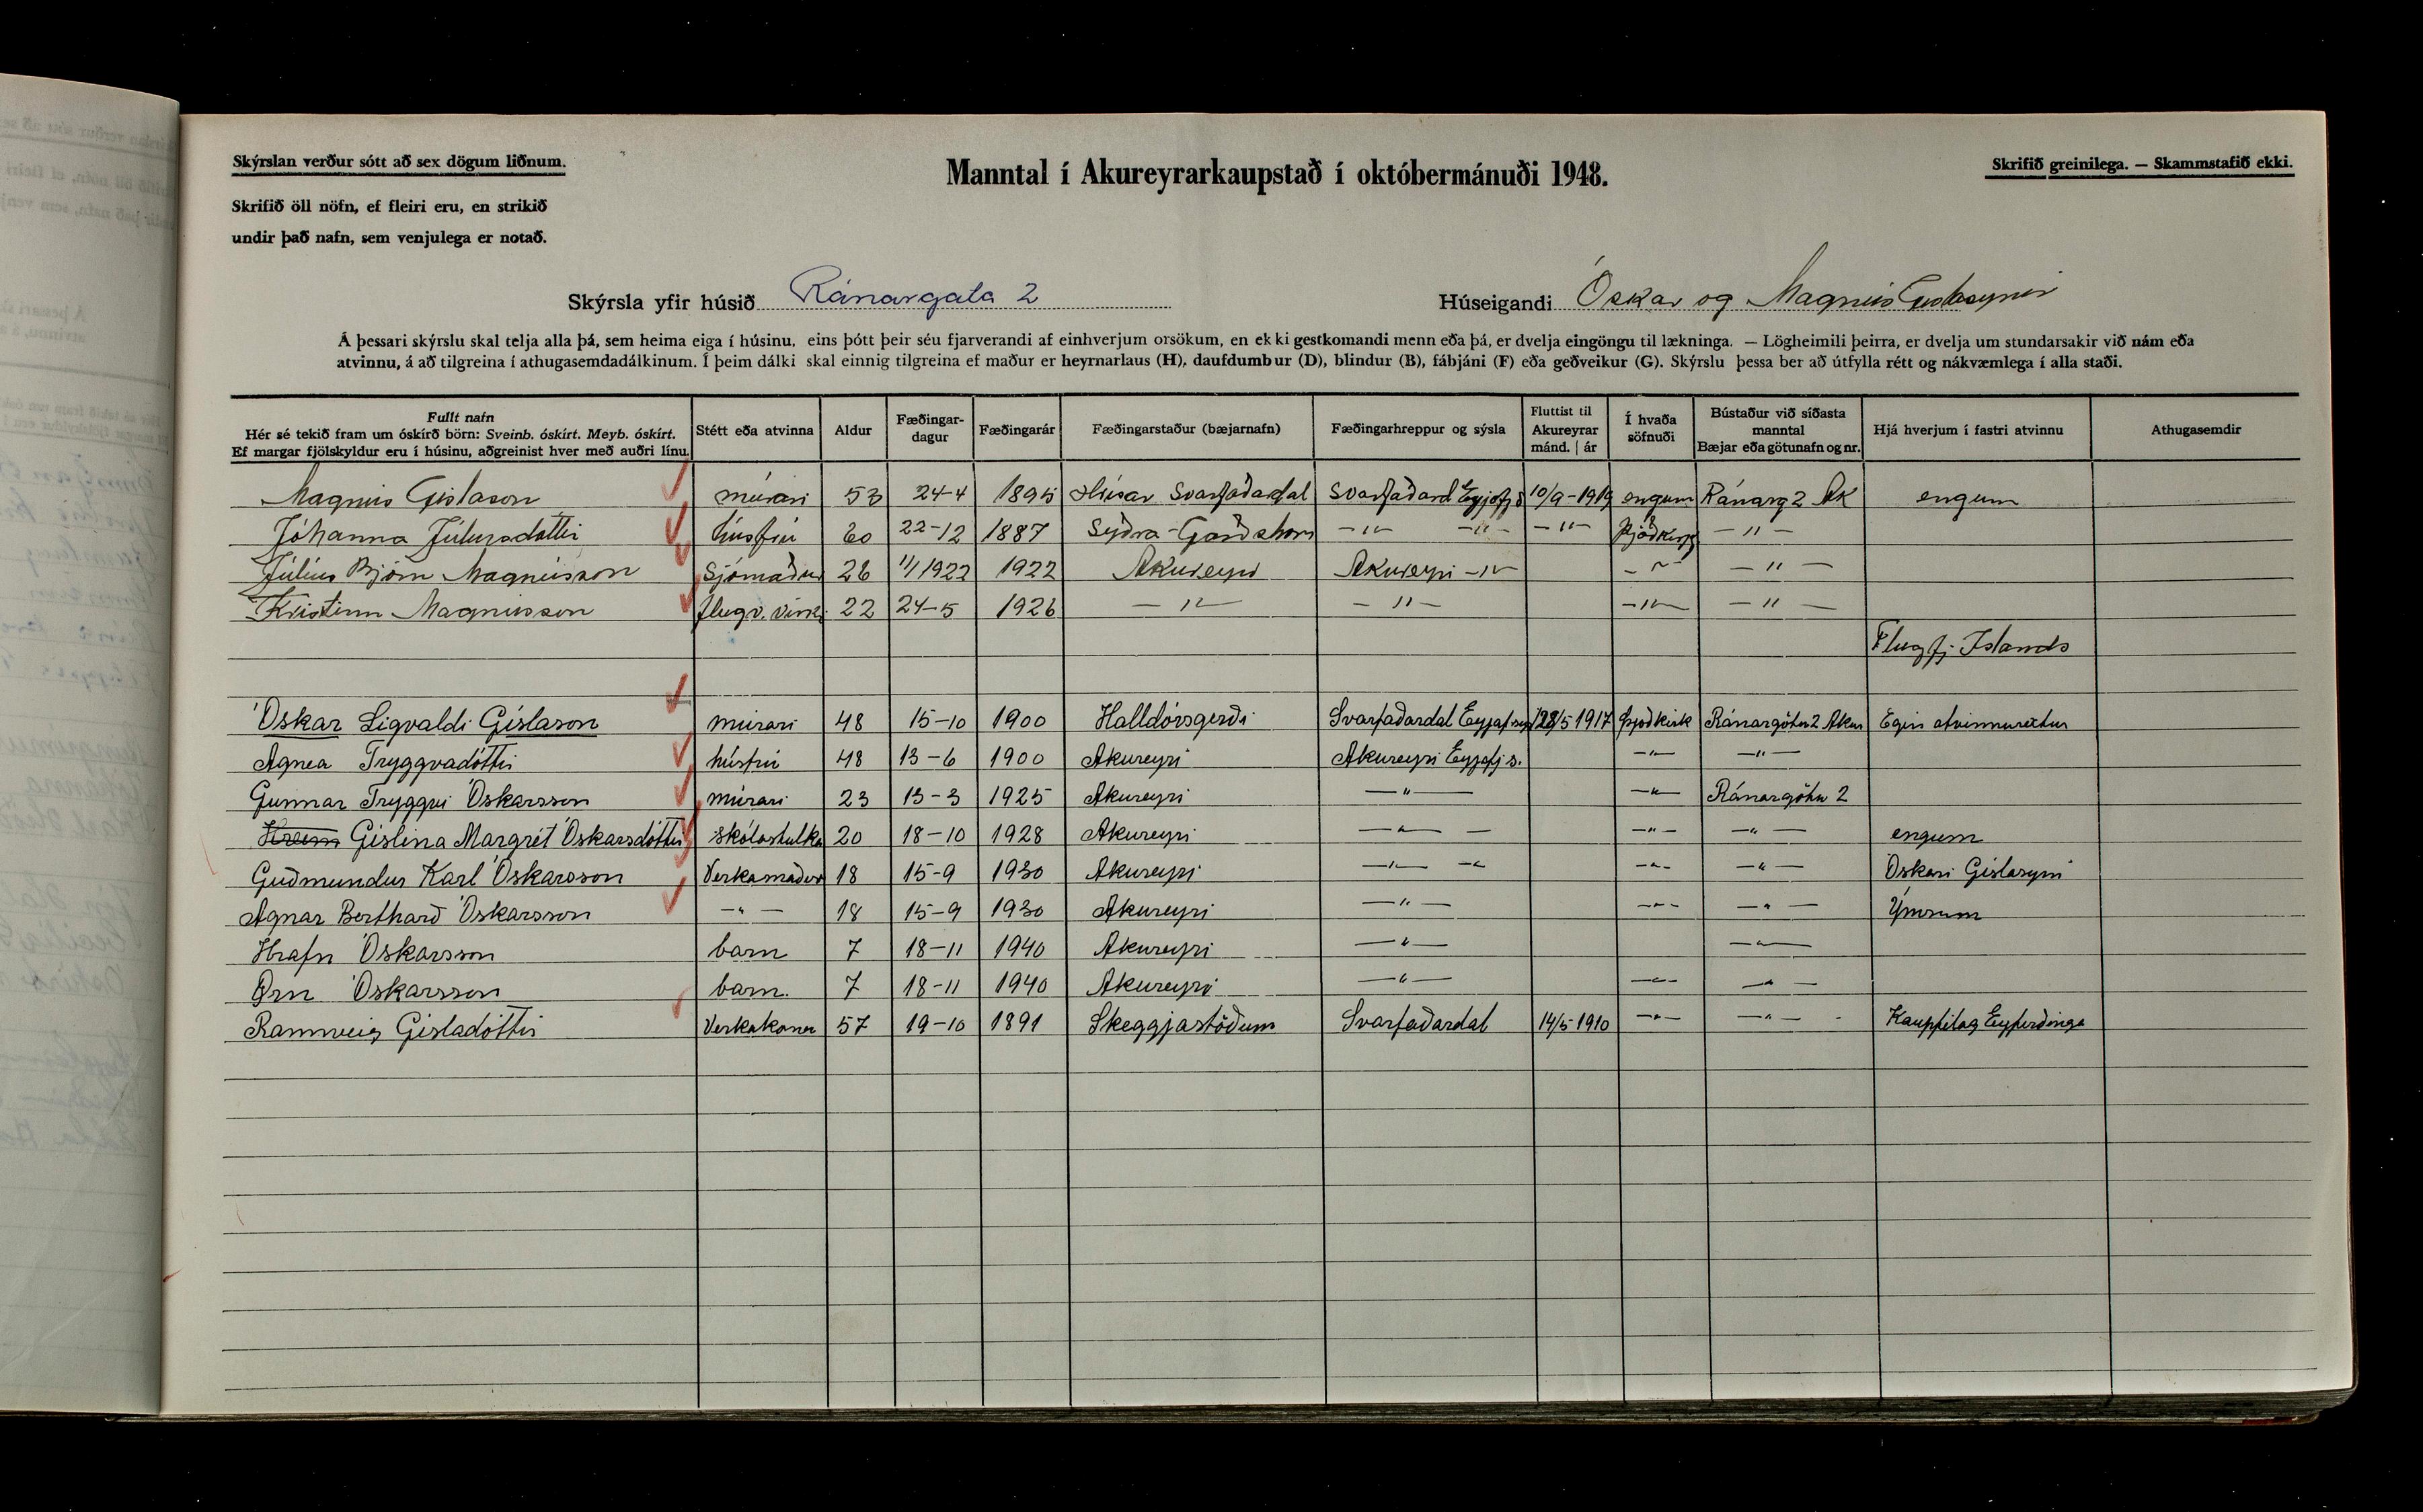 Skýrslan verður sótt að sex dögum liðnum.
Manntal í Akureyrarkaupstað í októbermánuði 1948.
Skrifið greinilega. — Skammstafið ekki.
Skrifið öll nöfn, ef fleiri eru, en strikið
undir það nafn, sem venjulega er notað.
Skýrsla yfir húsið Ránargata 2 Húseigandi Óskar og Magnús Gíslasynir
Á þessari skýrslu skal telja alla þá, sem heima eiga í húsinu, eins þótt þeir séu fjarverandi af einhverjum orsökum, en ekki gestkomandi menn eða þá, er dvelja eingöngu til lækninga. — Lögheimili þeirra, er dvelja um stundarsakir við nám eða
atvinnu, á að tilgreina í athugasemdadálkinum. Í þeim dálki skal einnig tilgreina ef maður er heyrnarlaus (H), daufdumbur (D), blindur (B), fábjáni (F) eða geðveikur (G). Skýrslu þessa ber að útfylla rétt og nákvæmlega í alla staði.
Fullt nafn
Hér sé tekið fram um óskírð börn: Sveinb. óskírt. Meyb. óskírt.
Ef margar fjölskyldur eru í húsinu, aðgreinist hver með auðri línu.
Stétt eða atvinna
Aldur
Fæðingar-
dagur
Fæðingarár
Fæðingarstaður (bæjarnafn)
Fæðingarhreppur og sýsla
Fluttist til
Akureyrar
mánd. | ár
Í hvaða
söfnuði
Bústaður við síðasta
manntal
Bæjar eða götunafn og nr.
Hjá hverjum í fastri atvinnu
Athugasemdir
Magnús Gíslason múrari 53 24-4 1895 Svarfaðardal Svarfaðard Eyjafj s 10/9-1919 engum Ránarg 2 Ak engum
Jóhanna Júlíusdóttir húsfrú 60 22-12 1887 Syðra-Garðshorn -"- -"- -"- Þjóðkirkj -"-
Júlíus Björn Magnússon Sjómaður 26 1/1 1922 1922 Akureyri Akureyri -"- -"- -"-
Kristinn Magnússon flugv. virki 22 24-5 1926 -"- -"- -"- -"-
Flugfj. Íslands
Óskar Sigvaldi Gíslason múrari 48 15-10 1900 Halldórsgerði Svarfaðardal 28/5 1917 þjóðkirk Ránargötu 2 Akur Egin atvinnurektur
Agnea Tryggvadóttir húsfrú 48 13-6 1900 Akureyri Akureyri Eyjafj s. -"- -"-
Gunnar Tryggvi Óskarsson múrari 23 13-3 1925 Akureyri -"- -"- Ránargötu 2
Gíslina Margrét Óskarsdóttir skólastulka 20 18-10 1928 Akureyri -"- -"- -"- engum
Guðmundur Karl Óskarsson Verkamaður 18 15-9 1930 Akureyri -"- -"- -"- -"- Óskari Gíslasyni
Agnar Berthard Óskarsson -"- 18 15-9 1930 Akureyri -"- -"- -"- Ýmsum
Hrafn Óskarsson barn 7 18-11 1940 Akureyri -"- -"-
Örn Óskarsson barn. 7 18-11 1940 Akureyri -"- -"- -"-
Rannveig Gísladóttir Verkakona 57 19-10 1891 Skeggjastöðum Svarfaðardal 14/5 1910 -"- -"- Kaupfélag Eyfirðinga